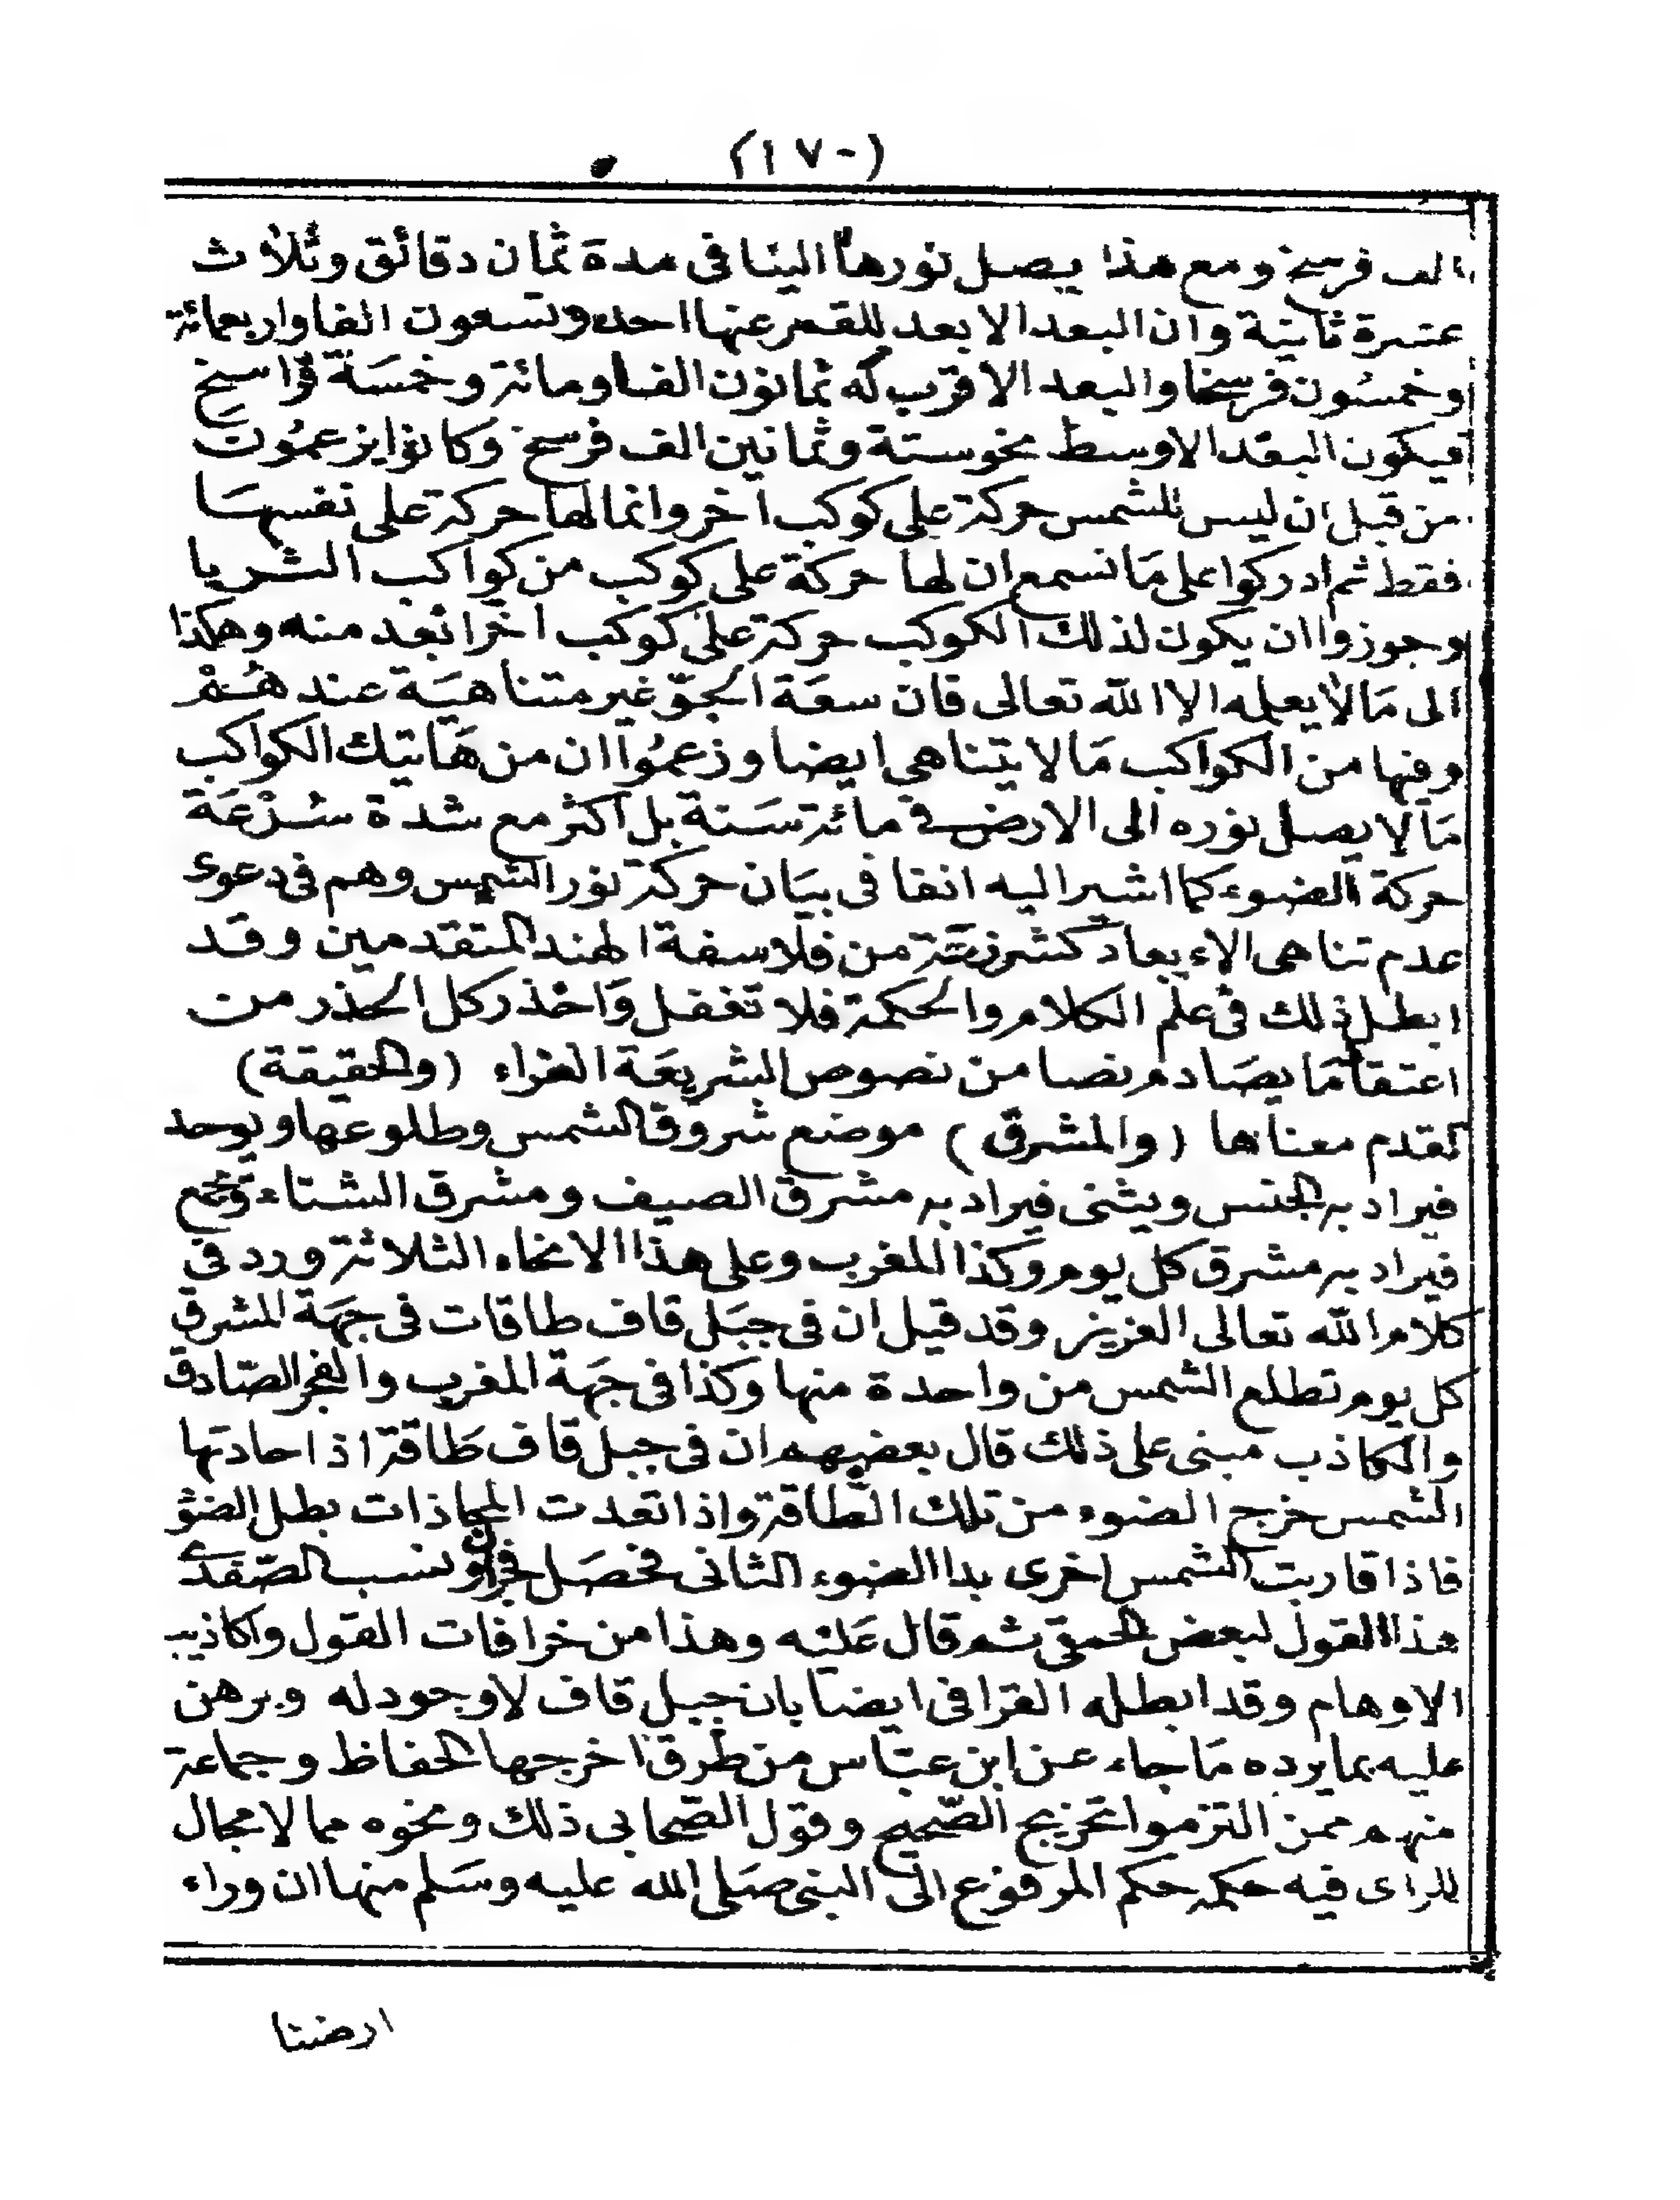 (١٧٠)
الف فرسخ ومع هذا يصل نورها الينا فى مدة ثمان دقائق وثلاث
عشرة ثانية وان البعد الابعد للقمر عنها احد وتسعون الفا واربعمائة
وخمسون فرسخا والبعد الاقرب له ثمانون الفا ومائة وخمسة فراسخ
فيكون البعد الاوسط نحو ستة وثمانين الف فرسخ وكانوا يزعمون
من قبل ان ليس للشمس حركة على كوكب اخر وانما لها حركة على نفسها
فقط ثم ادركوا على ما نسمع ان لها حركة على كوكب من كواكب الثريا
وجوزوا ان يكون لذلك الكوكب حركة على كوكب اخر ابعد منه وهكذا
الى ما لا يعلمه الا الله تعالى فان سعة الجو غير متناهية عند هم
وفيها من الكواكب ما لا يتناهي ايضا وزعموا ان من هاتيك الكواكب
ما لا يصل نوره الى الارض في مائة سنة بل اكثر مع شدة سرعة
حركة الضوء كما اشير اليه انفا فى بيان حركة نور الشمس وهم فى دعوى
عدم تناهى الابعاد كشرذمة من فلاسفة الهند المتقدمين وقد
ابطل ذلك فى علم الكلام والحكمة فلا تغفل واحذر كل الحذر من
اعتقاد ما يصادم نصا من نصوص الشريعة الغراء (والحقيقة)
تقدم معناها (والمشرق) موضع شروق الشمس وطلوعها ويوحد
فيراد به الجنس ويثنى فيراد به مشرق الصيف ومشرق الشتاء ويجمع
فيراد به مشرق كل يوم وكذا المغرب وعلى هذا الانحاء الثلاثة ورد في
كلام الله تعالى العزيز وقد قيل ان فى جبل قاف طاقات فى جهة المشرق
كل يوم تطلع الشمس من واحدة منها وكذا فى جهة المغرب والفجر الصادق
والكاذب مبنى على ذلك قال بعضهم ان فى جبل قاف طاقة اذا حاذتها
الشمس خرج الضوء من تلك الطاقة واذا تعدت المحاذات بطل الضؤ
فاذا قاربت الشمس اخرى بدا الضوء الثانى فحصل فجران ونسب الصفدى
هذا القول لبعض الحمقى ثم قال عليه وهذا من خرافات القول واكاذيب
الاوهام وقد ابطله القرافى ايضا بان جبل قاف لا وجود له وبرهن
عليه بما يرده ما جاء عن ابن عباس من طرق اخرجها الحفاظ وجماعة
منهم ممن التزموا تخريج الصحيح وقول الصحابى ذلك ونحوه مما لا مجال
للراى فيه حكمه حكم المرفوع الى النبى صلى الله عليه وسلم منها ان وراء
ارضنا